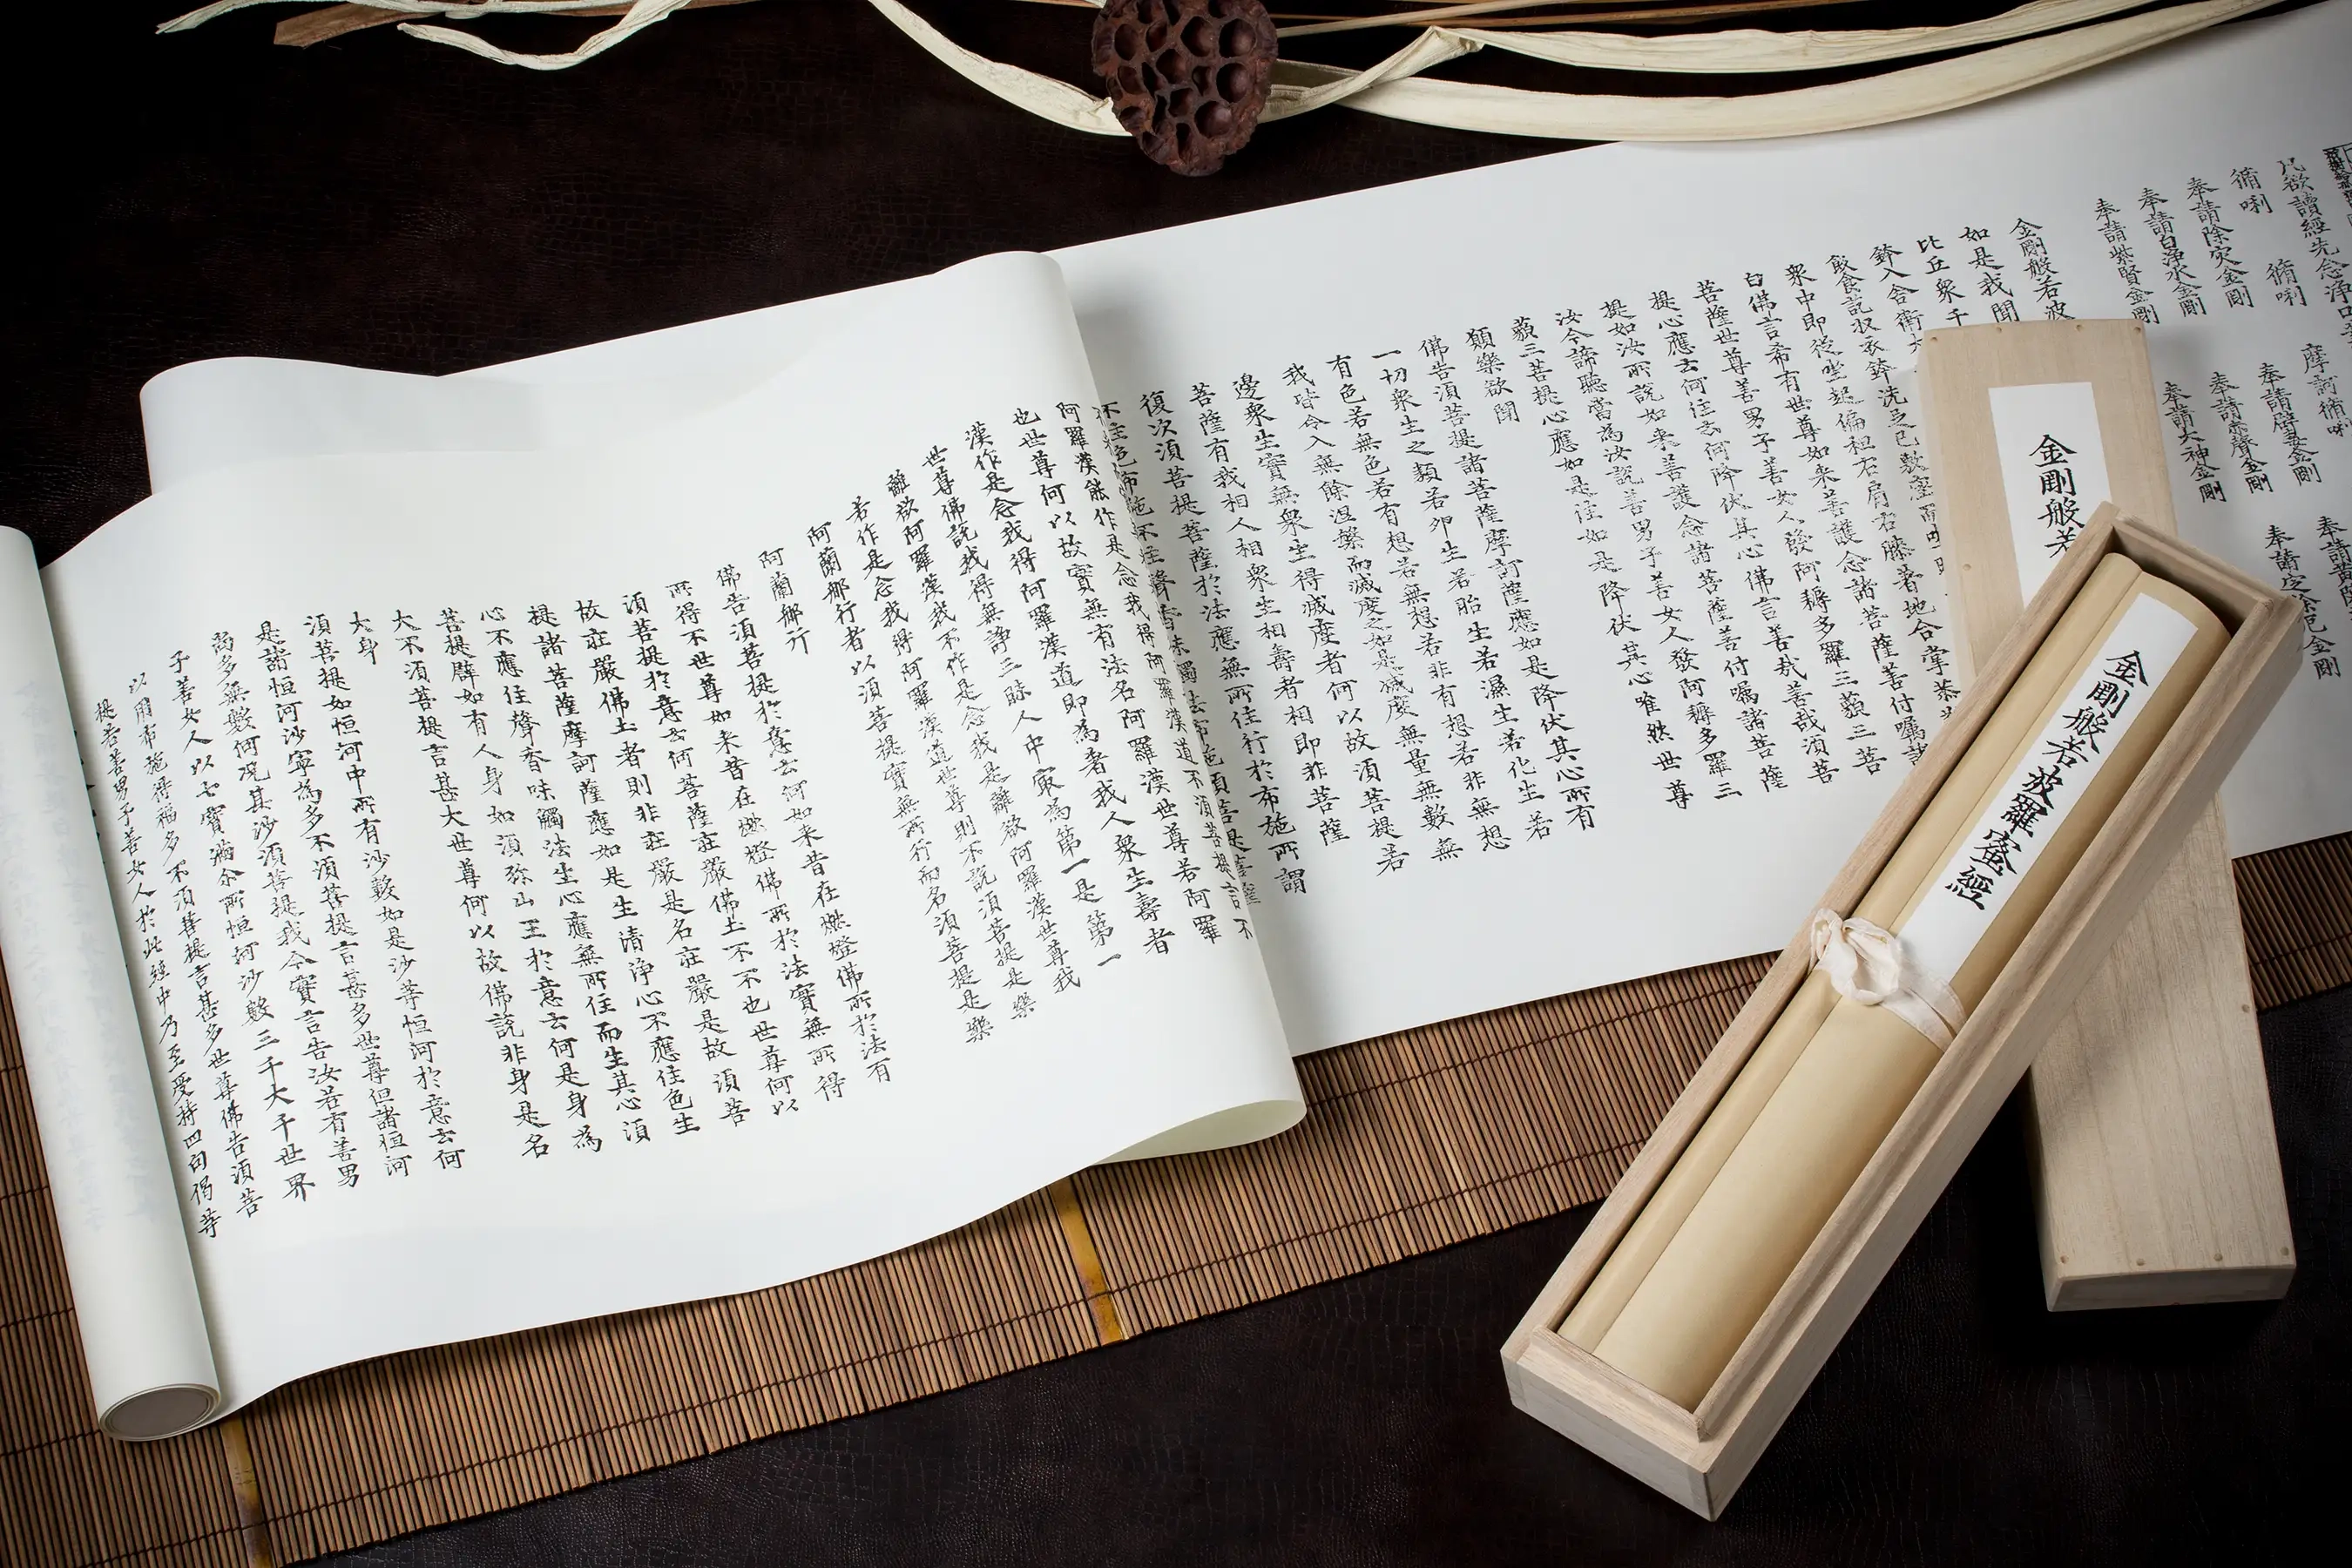 凡欲讀經先念淨口
脩唎 脩唎 摩訶脩唎
奉請除災金剛 奉請辟毒金剛
奉請白淨水金剛 奉請赤聲金剛 奉請定除厄金剛
奉請紫賢金剛 奉請大神金剛
金剛般若波
如是我聞
比丘眾千
鉢入舍衛大
飯食訖收衣鉢洗足已敷座而
眾中即從坐起偏袒右肩右膝著地合掌恭
白佛言希有世尊如來善護念諸菩薩善付囑諸
菩薩世尊善男子善女人發阿耨多羅三藐三菩
提心應云何住云何降伏其心佛言善哉善哉須菩
提如汝所說如來善護念諸菩薩善付囑諸菩薩
汝今諦聽當為汝說善男子善女人發阿耨多羅三
藐三菩提心應如是住如是降伏其心唯然世尊
願樂欲聞
佛告須菩提諸菩薩摩訶薩應如是降伏其心所有
一切眾生之類若卵生若胎生若濕生若化生若
有色若無色若有想若無想若非有想若非無想
我皆令入無餘涅槃而滅度之如是滅度無量無數無
邊眾生實無眾生得滅度者何以故須菩提若
菩薩有我相人相眾生相壽者相即非菩薩
復次須菩提菩薩於法應無所住行於布施所謂
不住色布施不住聲香味觸法布施須菩提菩薩
阿羅漢能作是念我得阿羅漢道不須菩提言不
也世尊何以故實無有法名阿羅漢世尊若阿羅
漢作是念我得阿羅漢道即為著我人眾生壽者
世尊佛說我得無諍三昧人中最為第一是第一
離欲阿羅漢我不作是念我是離欲阿羅漢世尊我
若作是念我得阿羅漢道世尊則不說須菩提是樂
阿蘭那行者以須菩提實無所行而名須菩提是樂
阿蘭那行
佛告須菩提於意云何如來昔在燃燈佛所於法有
所得不世尊如來昔在燃燈佛所於法實無所得
須菩提於意云何菩薩莊嚴佛土不不也世尊何以
故莊嚴佛土者則非莊嚴是名莊嚴是故須菩
提諸菩薩摩訶薩應如是生清淨心不應住色生
心不應住聲香味觸法生心應無所住而生其心須
菩提譬如有人身如須弥山王於意云何是身為
大不須菩提言甚大世尊何以故佛說非身是名
大身
須菩提如恒河中所有沙數如是沙等恒河於意云何
是諸恒河沙寧為多不須菩提言甚多世尊但諸恒河
尚多無數何況其沙須菩提我今實言告汝若有善男
子善女人以七寶滿尒所恒河沙數三千大千世界
以用布施得福多不須菩提言甚多世尊佛告須菩
提若善男子善女人於此經中乃至受持四句偈等
金剛般若
金剛般若波羅蜜經